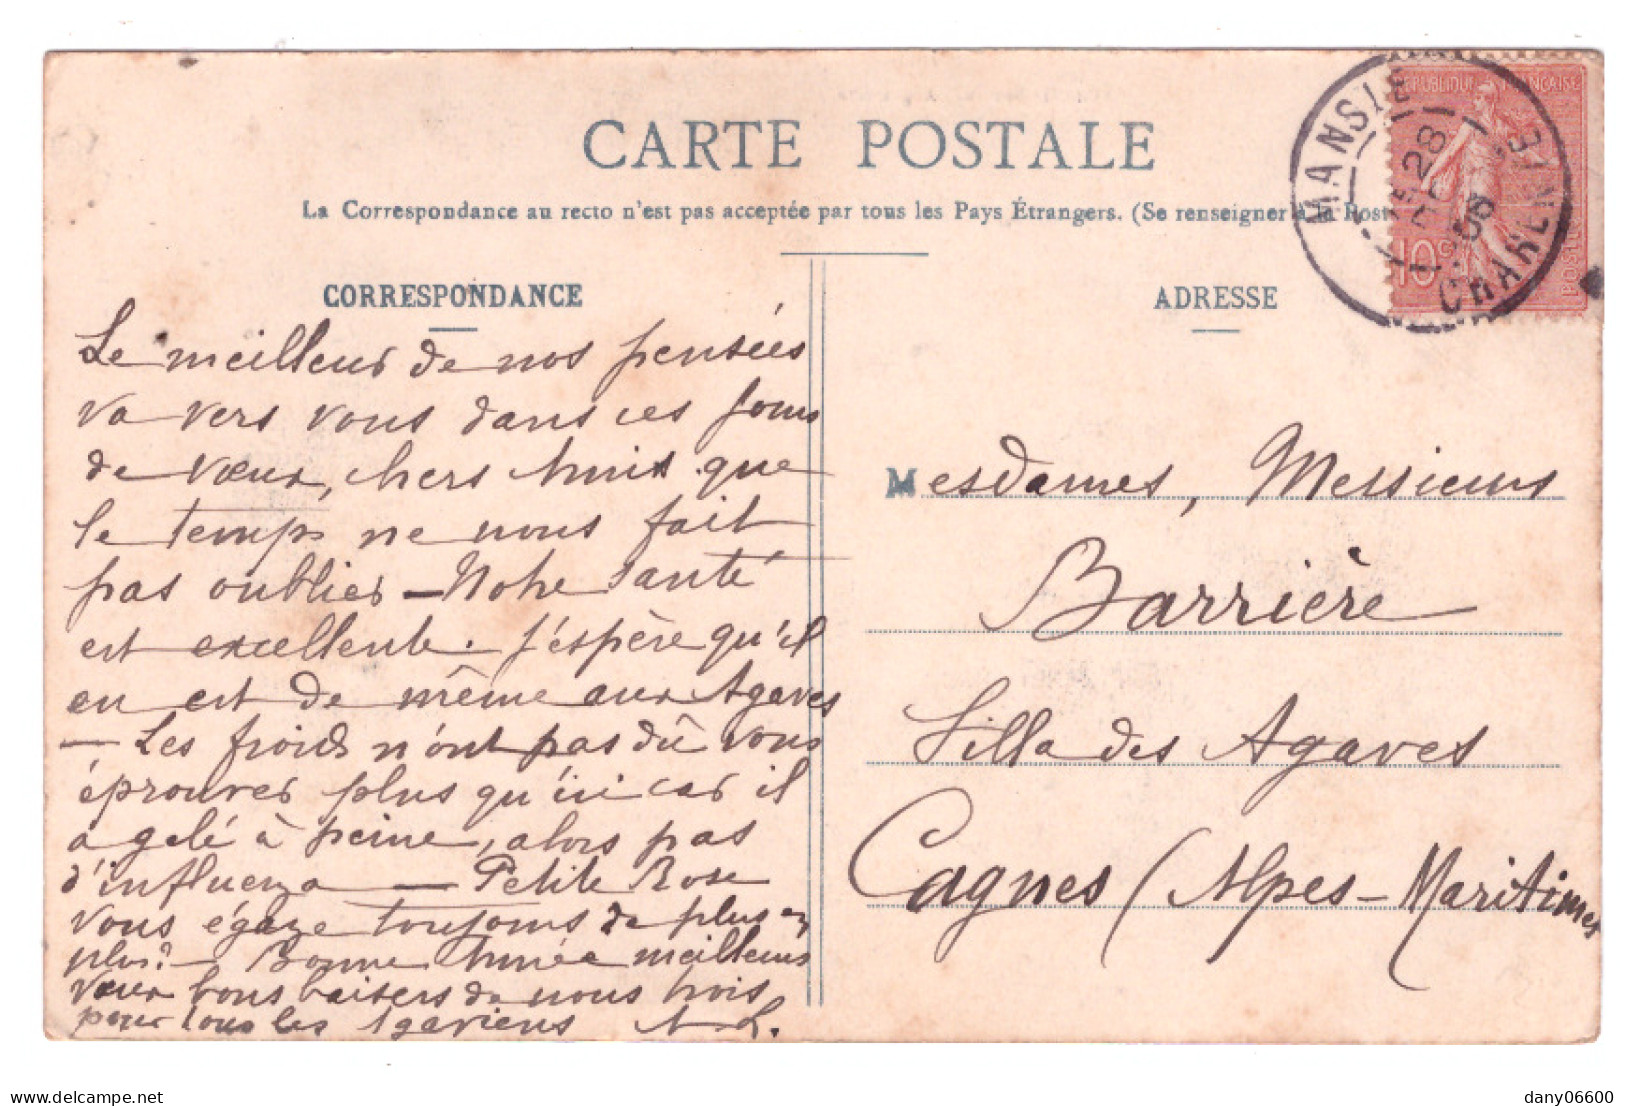 CARTE POSTALE
La Correspondance au recto n'est pas acceptée par tous les Pays Étrangers. (Se renseigner à la Poste
CORRESPONDANCE
ADRESSE
MANSLE
28
CHARENTE
REPUBLIQUE FRANÇAISE
10c
POSTES
Le meilleur de nos pensées
va vers vous dans ces jours
de vœux, chers Amis que
le temps ne nous fait
pas oublier – Notre santé
est excellente. J'espère qu'il
en est de même aux Agaves
– Les froids n'ont pas dû vous
éprouver plus qu'ici car il
a gelé à peine, alors pas
d'influenza – Petite Rose
vous égaze toujours de plus en
plus? – Bonne Année meilleurs
vœux bons baisers de nous trois
pour tous les Agaviens A. L.
Mesdames, Messieurs
Barrière
Villa des Agaves
Cagnes (Alpes-Maritimes
delcampe.net
dany06600